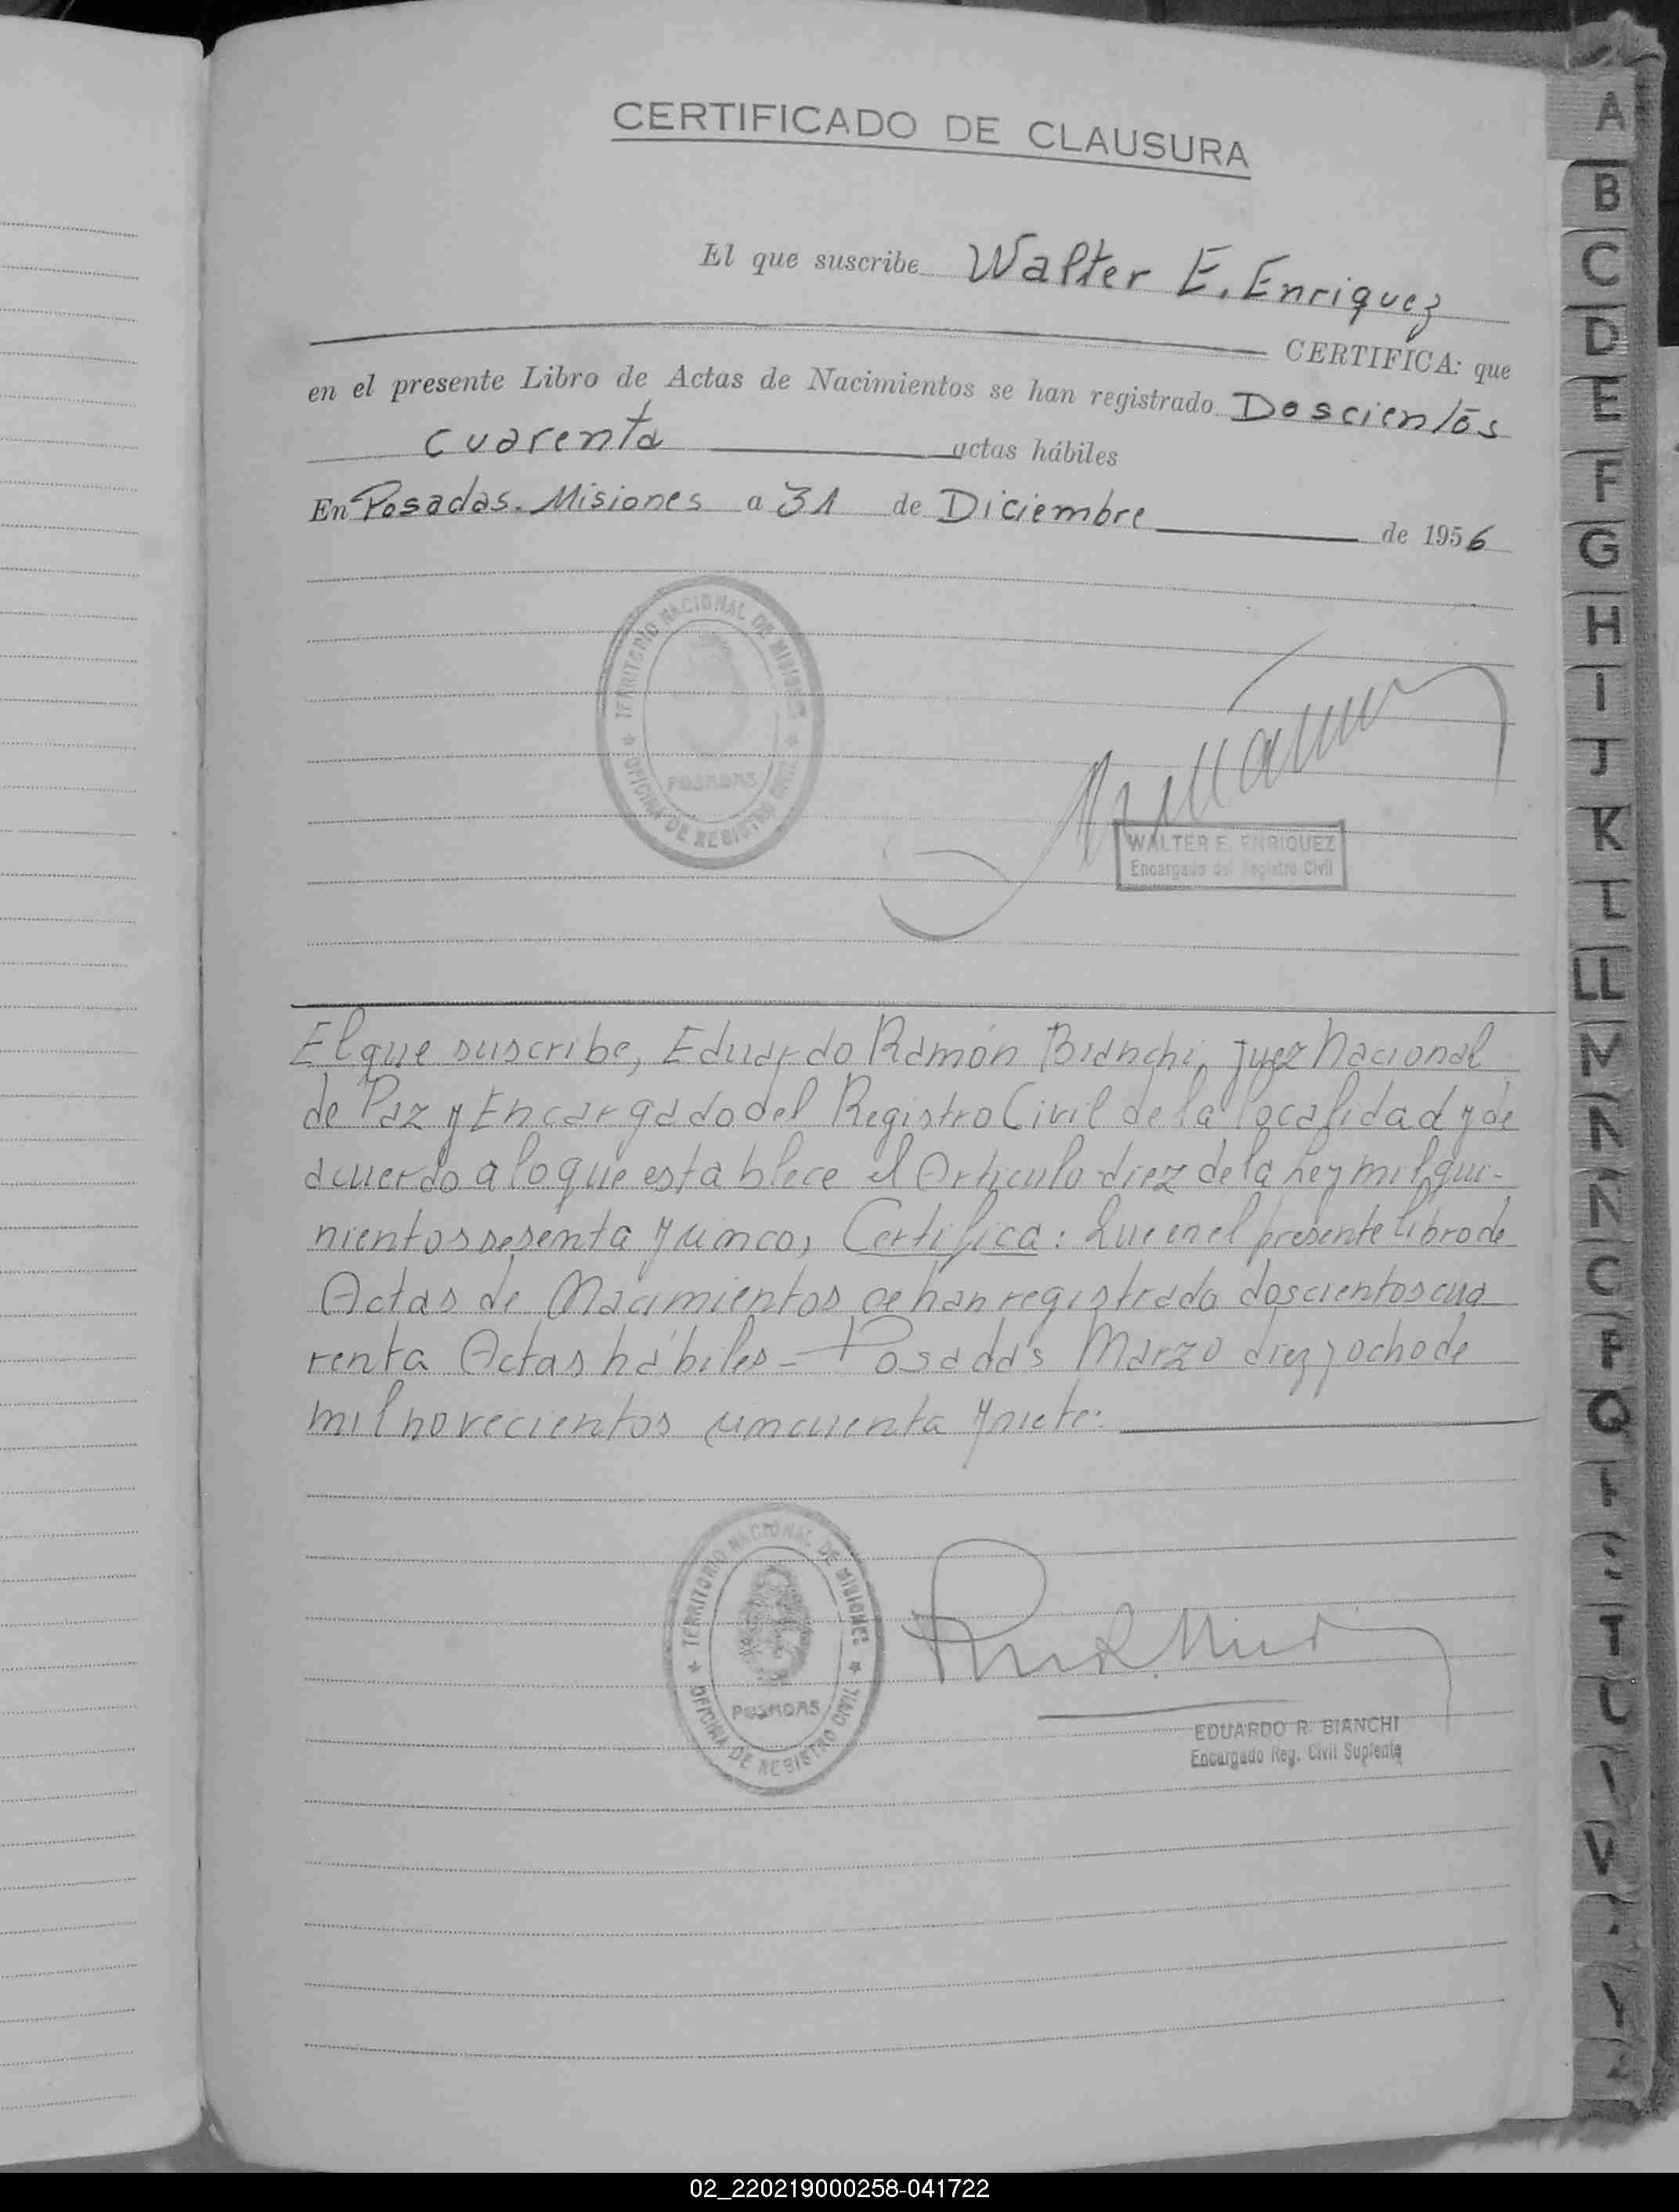 CERTIFICADO DE CLAUSURA
El que suscribe Walter E. Enriquez
CERTIFICA: que
en el presente Libro de Actas de Nacimientos se han registrado Doscientos
cuarenta actas hábiles
En Posadas. Misiones a 31 de Diciembre de 1956
TERRITORIO NACIONAL DE MISIONES
POSADAS
OFICINA DE REGISTRO CIVIL
WALTER E. ENRIQUEZ
Encargado del Registro Civil
El que suscribe, Eduardo Ramón Bianchi, Juez Nacional
de Paz y Encargado del Registro Civil de la localidad y de
acuerdo a lo que establece el Articulo diez de la Ley mil qui-
nientos sesenta y cinco, Certifica: Que en el presente Libro de
Actas de Nacimientos se han registrado doscientos cua
renta Actas hábiles - Posadas Marzo diez y ocho de
mil novecientos cincuenta y siete.
TERRITORIO NACIONAL DE MISIONES
POSADAS
OFICINA DE REGISTRO CIVIL
EDUARDO R. BIANCHI
Encargado Reg. Civil Suplente
A
B
C
D
E
F
G
H
I
J
K
L
LL
M
N
Ñ
O
P
Q
V
02_220219000258-041722